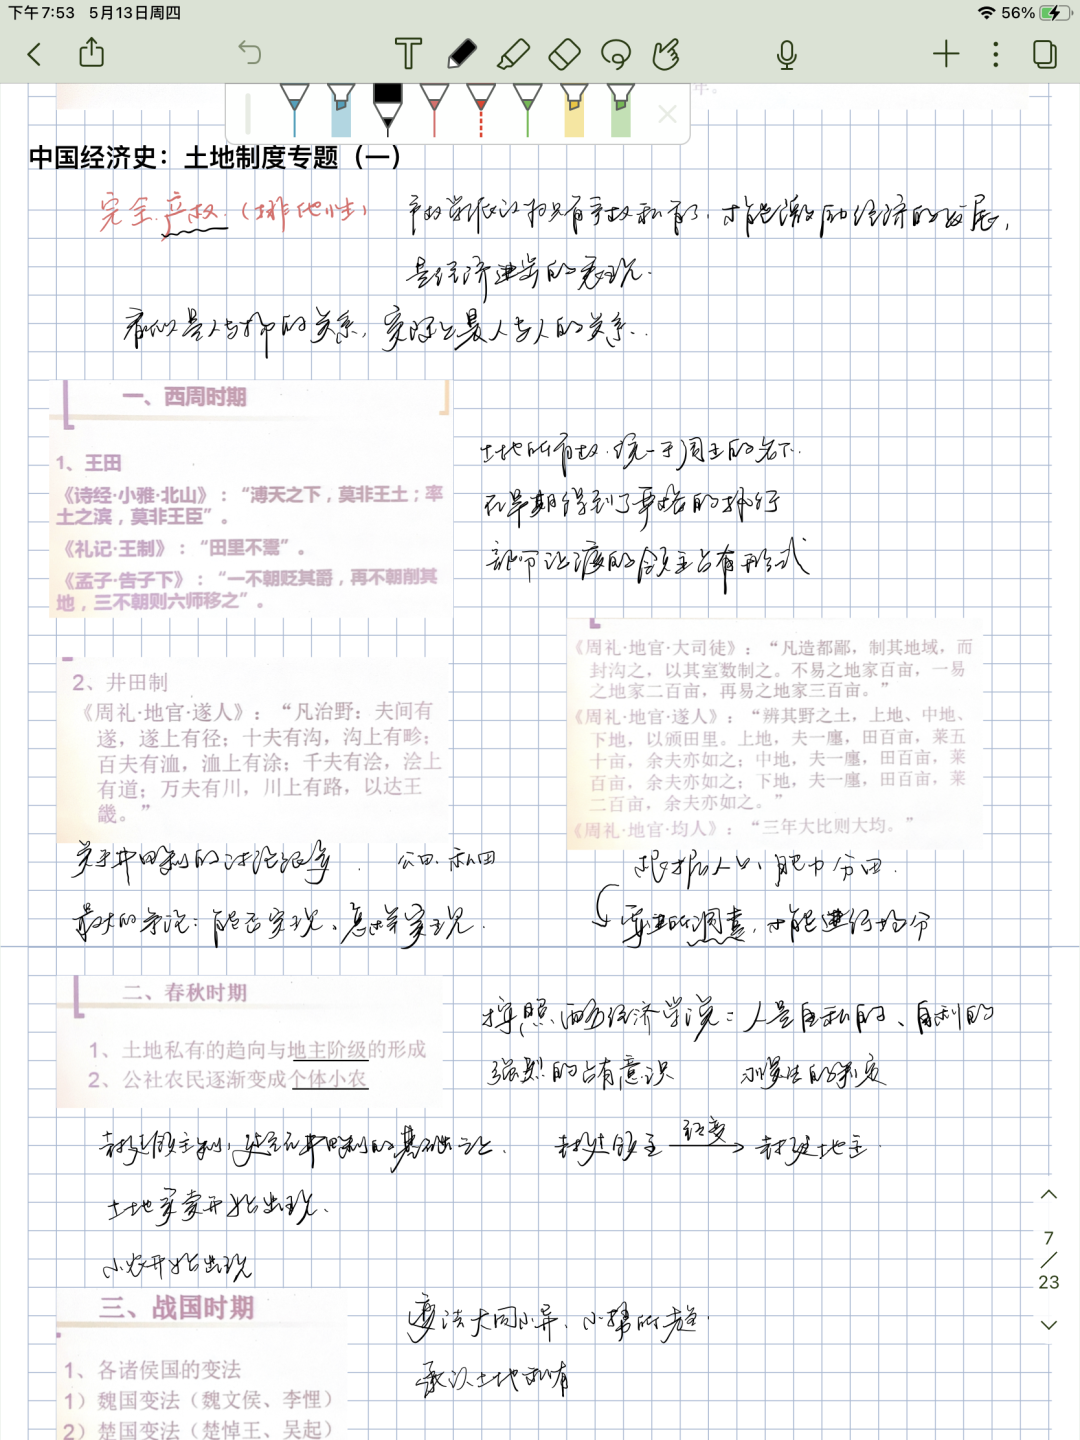 下午7:53 5月13日周四
56%
中国经济史：土地制度专题（一）
完全产权.（排他性） 产权学派认为只有产权私有了，才能激励经济的发展，
是经济进步的表现.
看似是人与物的关系，实际上是人与人的关系.
一、西周时期
1、王田
《诗经·小雅·北山》：“溥天之下，莫非王土；率
土之滨，莫非王臣”。
《礼记·王制》：“田里不鬻”。
《孟子·告子下》：“一不朝贬其爵，再不朝削其
地，三不朝则六师移之”。
土地所有权统一于周王的名下.
在早期得到了严格的执行
的领主占有形式
2、井田制
《周礼·地官·遂人》：“凡治野：夫间有
遂，遂上有径；十夫有沟，沟上有畛；
百夫有洫，洫上有涂；千夫有浍，浍上
有道；万夫有川，川上有路，以达王
畿。”
《周礼·地官·大司徒》：“凡造都鄙，制其地域，而
封沟之，以其室数制之。不易之地家百亩，一易
之地家二百亩，再易之地家三百亩。”
《周礼·地官·遂人》：“辨其野之土，上地、中地、
下地，以颁田里。上地，夫一廛，田百亩，莱五
十亩，余夫亦如之；中地，夫一廛，田百亩，莱
百亩，余夫亦如之；下地，夫一廛，田百亩，莱
二百亩，余夫亦如之。”
《周礼·地官·均人》：“三年大比则大均。”
关于井田制的讨论很多. 公田、私田
最大的争论：能否实现、怎样实现.
根据人口、肥力分田.
调查，才能进行均分
二、春秋时期
1、土地私有的趋向与地主阶级的形成
2、公社农民逐渐变成个体小农
按照西方经济学说：人是自私的、自利的
强烈的占有意识
封建领主制，建立在井田制的基础之上. 封建领主 转变 封建地主.
土地买卖开始出现.
小农开始出现
三、战国时期
1、各诸侯国的变法
1）魏国变法（魏文侯、李悝）
2）楚国变法（楚悼王、吴起）
变法大同小异，
承认土地私有
7
23